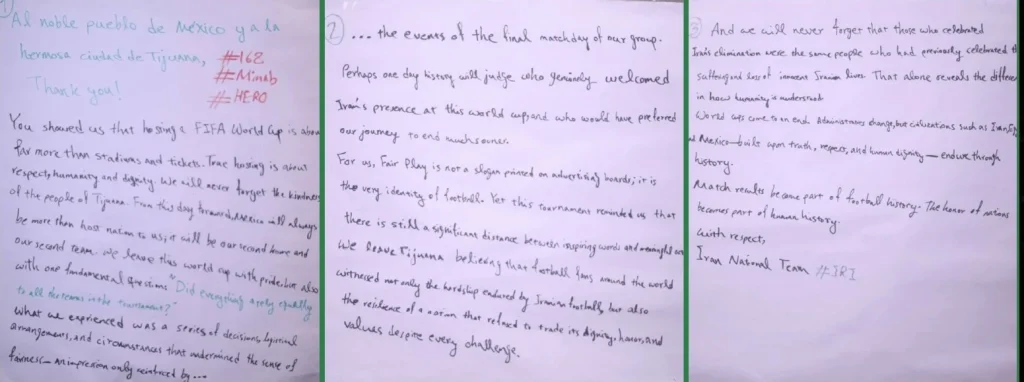 1
Al noble pueblo de México y a la
hermosa ciudad de Tijuana,
#168
#Minab
#HERO
Thank you!
You showed us that hosting a FIFA World Cup is about
far more than stadiums and tickets. True hosting is about
respect, humanity and dignity. We will never forget the kindness
of the people of Tijuana. From this day forward, Mexico will always
be more than host nation to us; it will be our second home and
our second team. We leave this world cup with pride, but also
with one fundamental questions "Did everything apply equally
to all the teams in the tournament?"
what we experienced was a series of decisions, logistical
arrangements, and circumstances that undermined the sense of
fairness - An impression only reinforced by...
2
... the events of the final matchday of our group.
Perhaps one day history will judge who genuinely welcomed
Iran's presence at this world cup, and who would have preferred
our journey to end much sooner.
For us, Fair Play is not a slogan printed on advertising boards; it is
the very identity of football. Yet this tournament reminded us that
there is still a significant distance between inspiring words and meaningful
We leave Tijuana believing that football fans around the world
witnessed not only the hardship endured by Iranian football, but also
the resilience of a nation that refused to trade its dignity, honor, and
values despite every challenge.
3
And we will never forget that those who celebrated
Iran's elimination were the same people who had previously celebrated
suffering and loss of innocent Iranian lives. That alone reveals the differen
in how humanity is understood.
World cups come to an end. Administrations change, but civilizations such as Iran
Mexico—built upon truth, respect, and human dignity—endure through
history.
Match results become part of football history. The honor of nations
becomes part of human history.
With respect,
Iran National Team #IRI